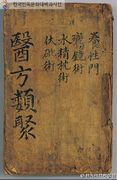 한국민족문화대백과사전
養性門
鏡術
水精枕術
術
醫方類聚